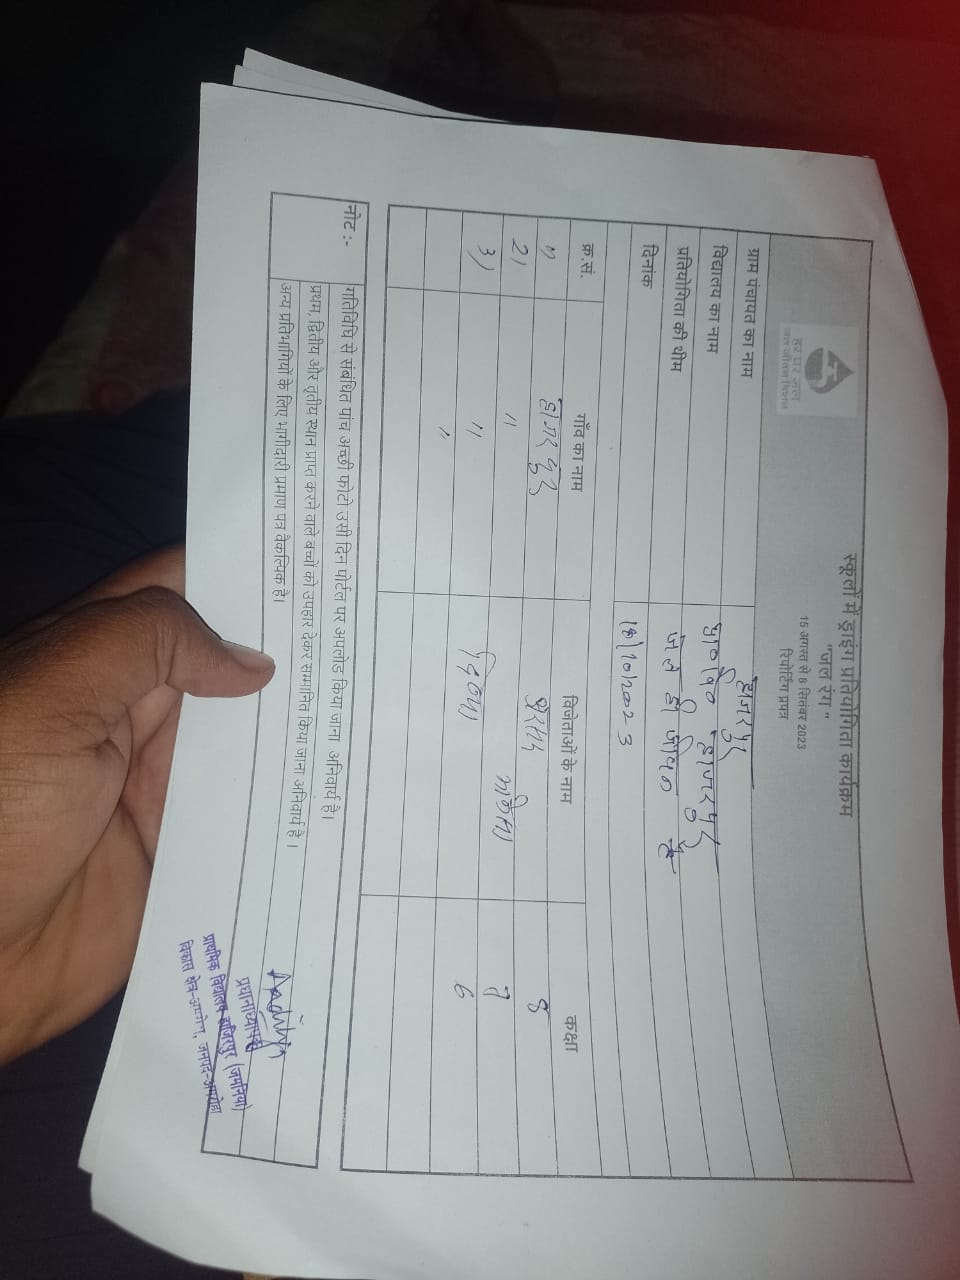 हर घर जल
जल जीवन मिशन
स्कूलों में ड्राइंग प्रतियोगिता कार्यक्रम
"जल रंग"
15 अगस्त से 8 सितंबर 2023
रिपोर्टिंग प्रपत्र
ग्राम पंचायत का नाम हाजरपुर
विद्यालय का नाम हाजरपुर
प्रतियोगिता की थीम जल ही जीवन है
दिनांक
क्र.सं. गाँव का नाम विजेताओं के नाम कक्षा
1) हाजरपुर 8
2) " 7
3) " दिव्या 6
"
नोट :- गतिविधि से संबंधित पांच अच्छी फोटो उसी दिन पोर्टल पर अपलोड किया जाना अनिवार्य है।
प्रथम, द्वितीय और तृतीय स्थान प्राप्त करने वाले बच्चों को उपहार देकर सम्मानित किया जाना अनिवार्य है।
अन्य प्रतिभागियों के लिए भागीदारी प्रमाण पत्र वैकल्पिक है।
प्रधानाध्यापक
प्राथमिक विद्यालय हाजिरपुर (जमनिया)
विकास क्षेत्र-, जनपद-अमरोहा